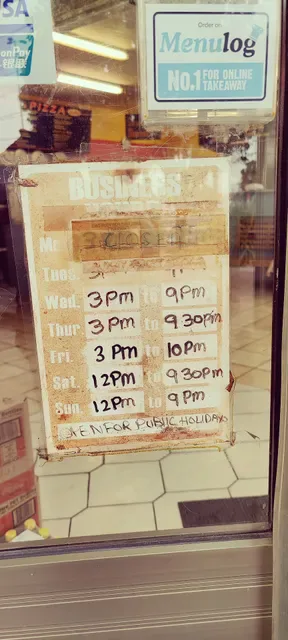 SA
onPay
Order on
Menulog
NO.1 FOR ONLINE TAKEAWAY
PIZZA
BUSINESS
CLOSED
Tues.
Wed. 3Pm to 9Pm
Thur. 3Pm to 9 30pm
Fri. 3 Pm to 10Pm
Sat. 12Pm to 930pm
Sun. 12Pm to 9 Pm
EN FOR PUBLIC HOLIDAY